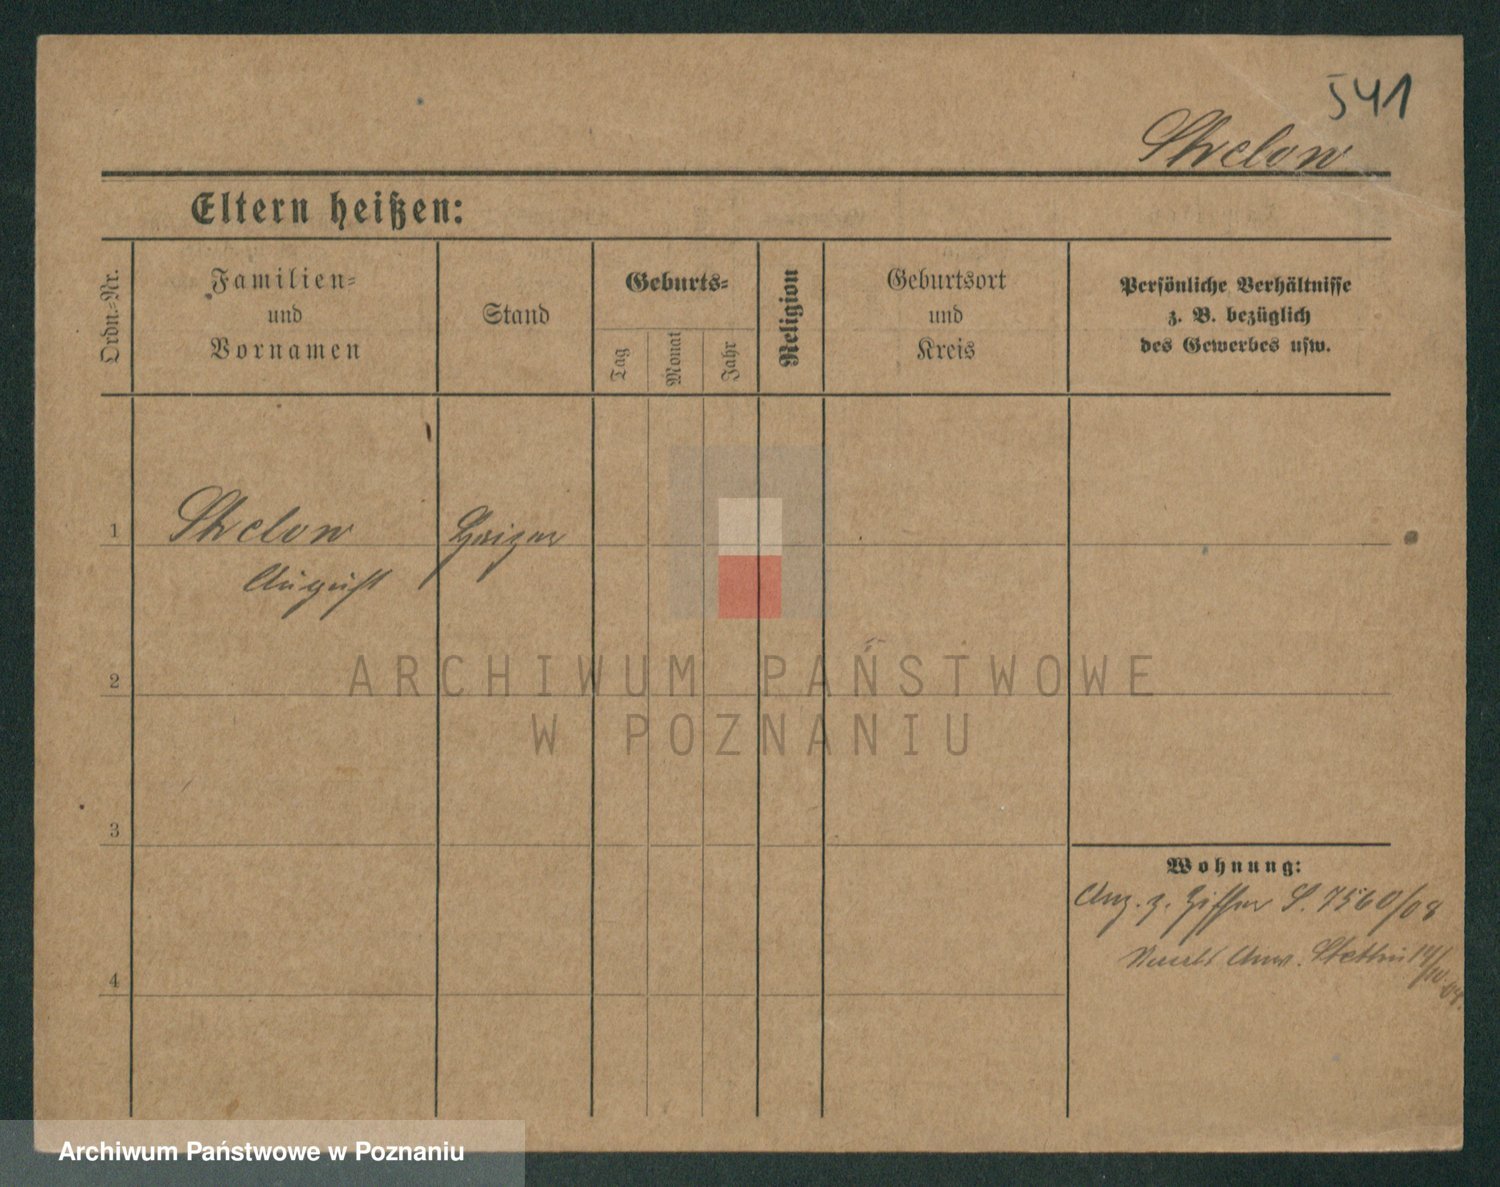 541
Strelow
Eltern heißen:
Ordn.-Nr.
Familien-
und
Vornamen
Stand
Geburts-
Tag
Monat
Jahr
Religion
Geburtsort
und
Kreis
Persönliche Verhältnisse
z. B. bezüglich
des Gewerbes usw.
1
Strelow
Heizer
August
2
ARCHIWUM PAŃSTWOWE
W POZNANIU
3
Wohnung:
Anz. z. Ziffer S. 7560/08
Stettin 14/10 08
4
Archiwum Państwowe w Poznaniu